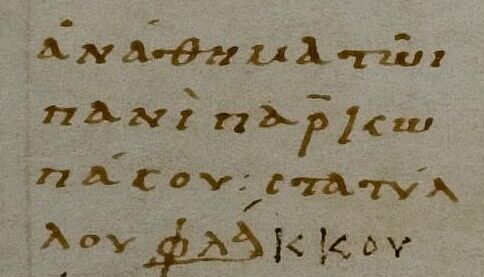 ἀνάθημα τῶι
πανὶ παρ̄ κω
πάσου: στατυλ
λου φλάκκου